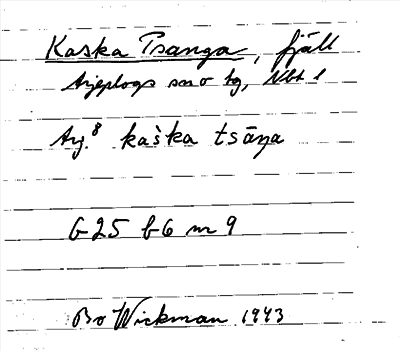 Kaska Tsanga, fjäll
Arjeplogs sn o tg, Nbt l
Arj.⁸ kaška tsāŋa
G25 b6 m 9
Bo Wickman 1943